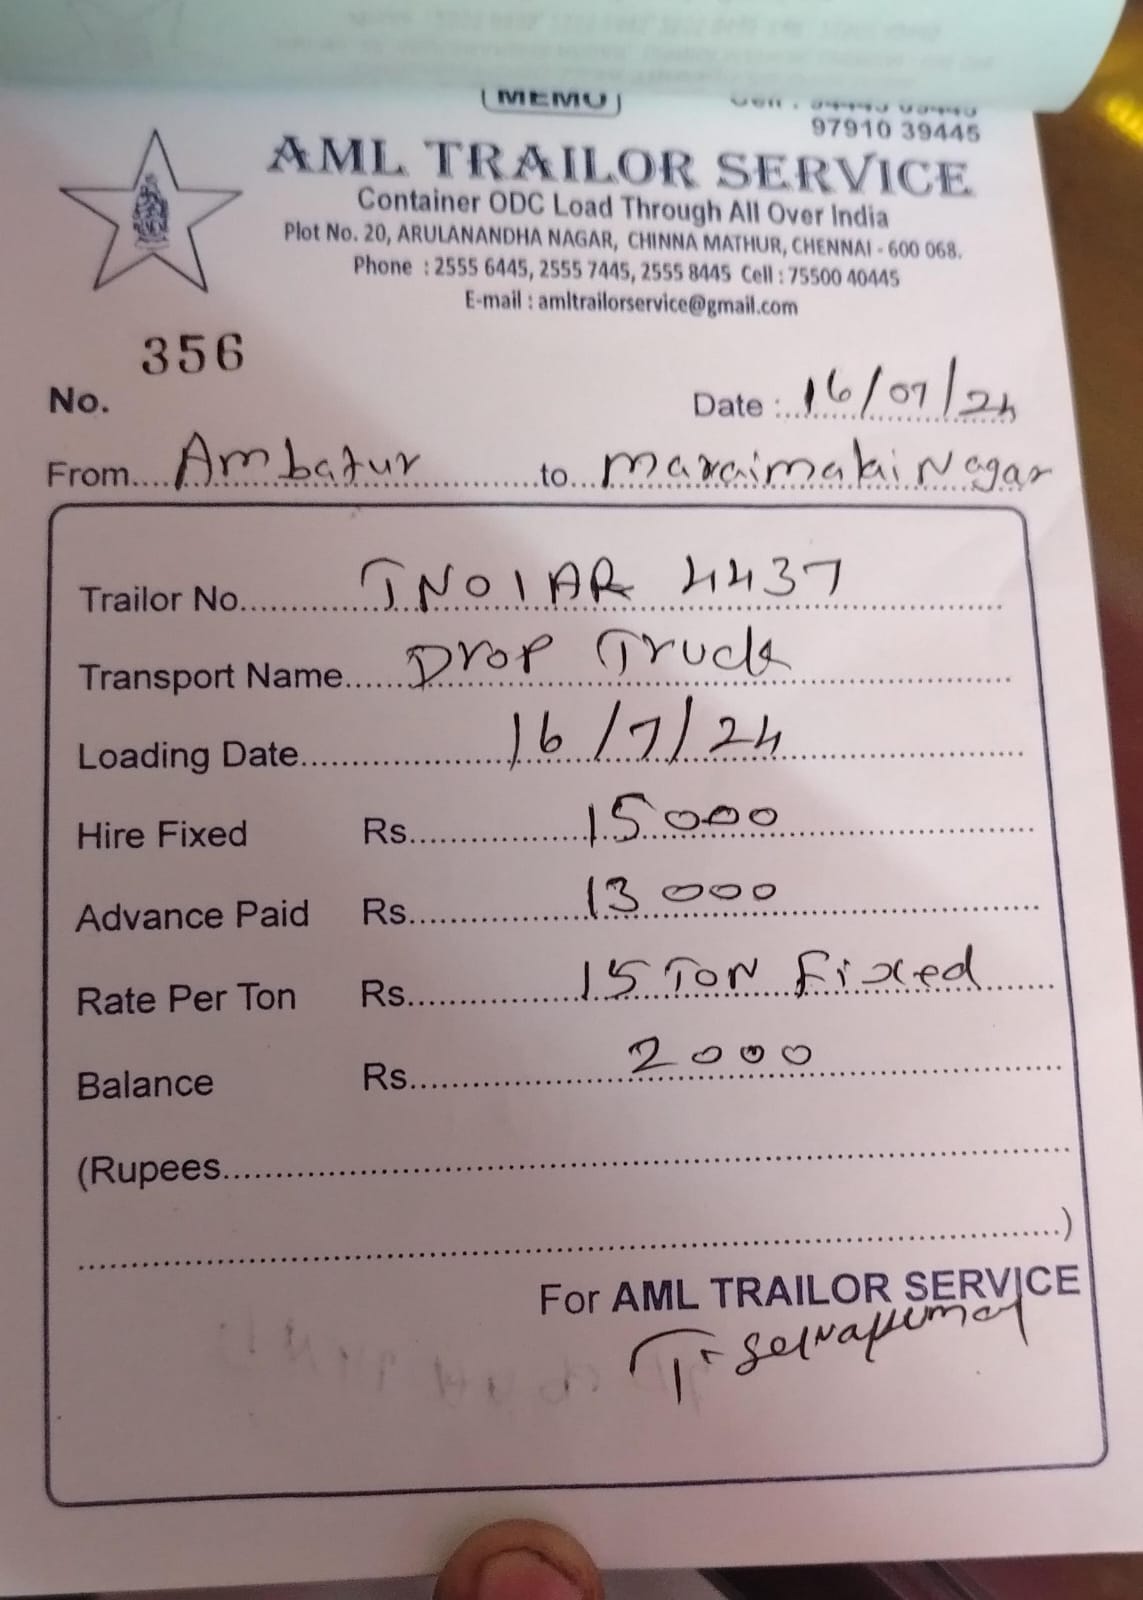 MEMO
97910 39445
AML TRAILOR SERVICE
Container ODC Load Through All Over India
Plot No. 20, ARULANANDHA NAGAR, CHINNA MATHUR, CHENNAI - 600 068.
Phone : 2555 6445, 2555 7445, 2555 8445 Cell : 75500 40445
E-mail : amltrailorservice@gmail.com
356
No. Date : 16/07/24
From Ambatur to maraimalai Nagar
Trailor No. TN01AR 4437
Transport Name Drop Truck
Loading Date 16/7/24
Hire Fixed Rs. 15000
Advance Paid Rs. 13000
Rate Per Ton Rs. 15 TON Fixed
Balance Rs. 2000
(Rupees
)
For AML TRAILOR SERVICE
T. Selvakumar